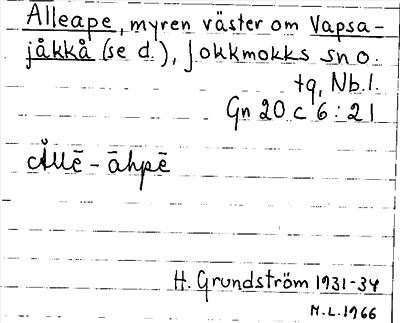 Alleape, myren väster om Vapsa-
jåkkå (se d.), Jokkmokks sn o.
tq, Nb.l.
Gn 20 c 6:21
Állē - āhpē
H. Grundström 1931-34
M.L. 1966